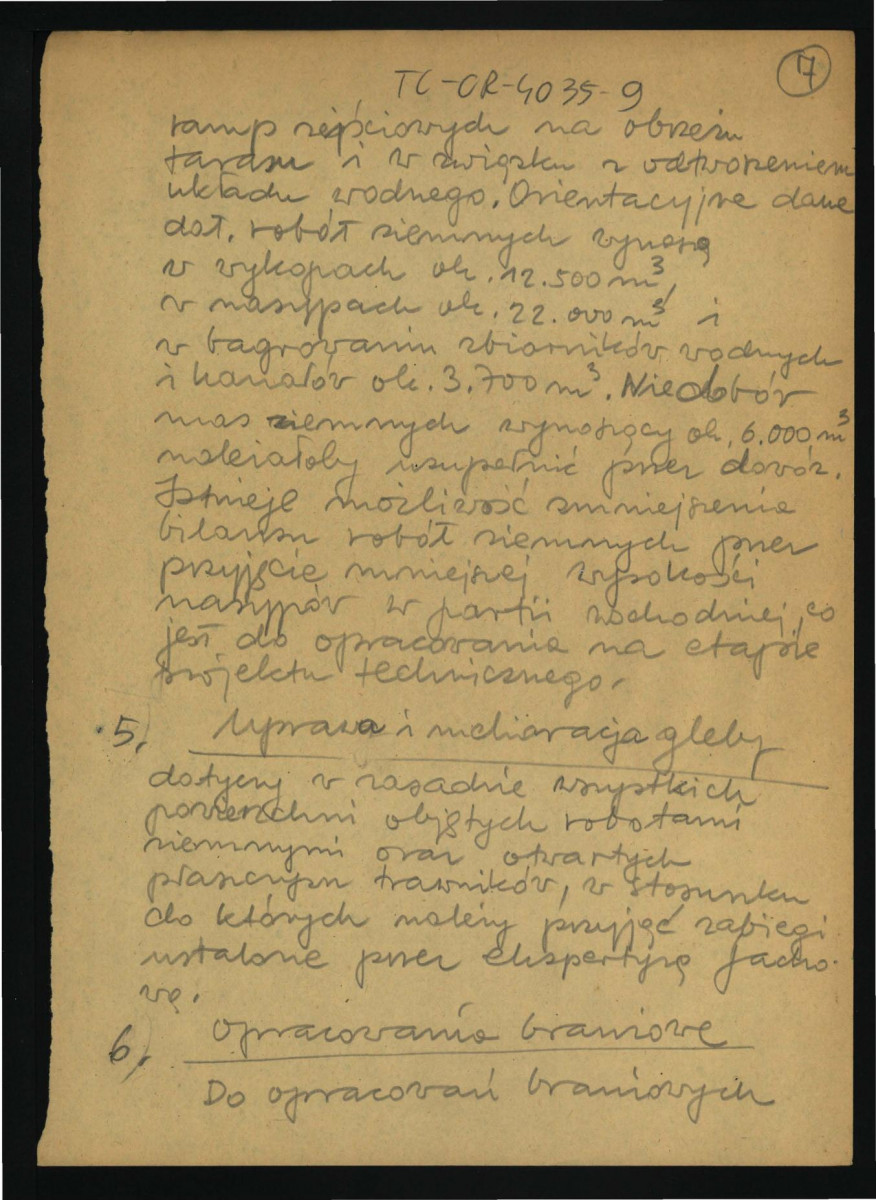 7
TC-OR-4035-9
ramp zejściowych na obrzeżu
tarasu i w związku z odtworzeniem
układu wodnego. Orientacyjne dane
dot. robót ziemnych wynoszą
w wykopach ok. 12.500 m³,
w nasypach ok. 22.000 m³ i
w bagrowaniu zbiorników wodnych
i kanałów ok. 3.700 m³. Niedobór
mas ziemnych wynoszący ok. 6.000 m³
należałoby uzupełnić przez dowóz.
Istnieje możliwość zmniejszenia
bilansu robót ziemnych przez
przyjęcie mniejszej wysokości
nasypów w partii zachodniej, co
jest do opracowania na etapie
projektu technicznego.
5. Uprawa i melioracja gleby
dotyczy w zasadzie wszystkich
powierzchni objętych robotami
ziemnymi oraz otwartych
płaszczyzn trawników, w stosunku
do których należy przyjąć zabiegi
ustalone przez ekspertyzę facho-
wą.
6. Opracowania branżowe
Do opracowań branżowych